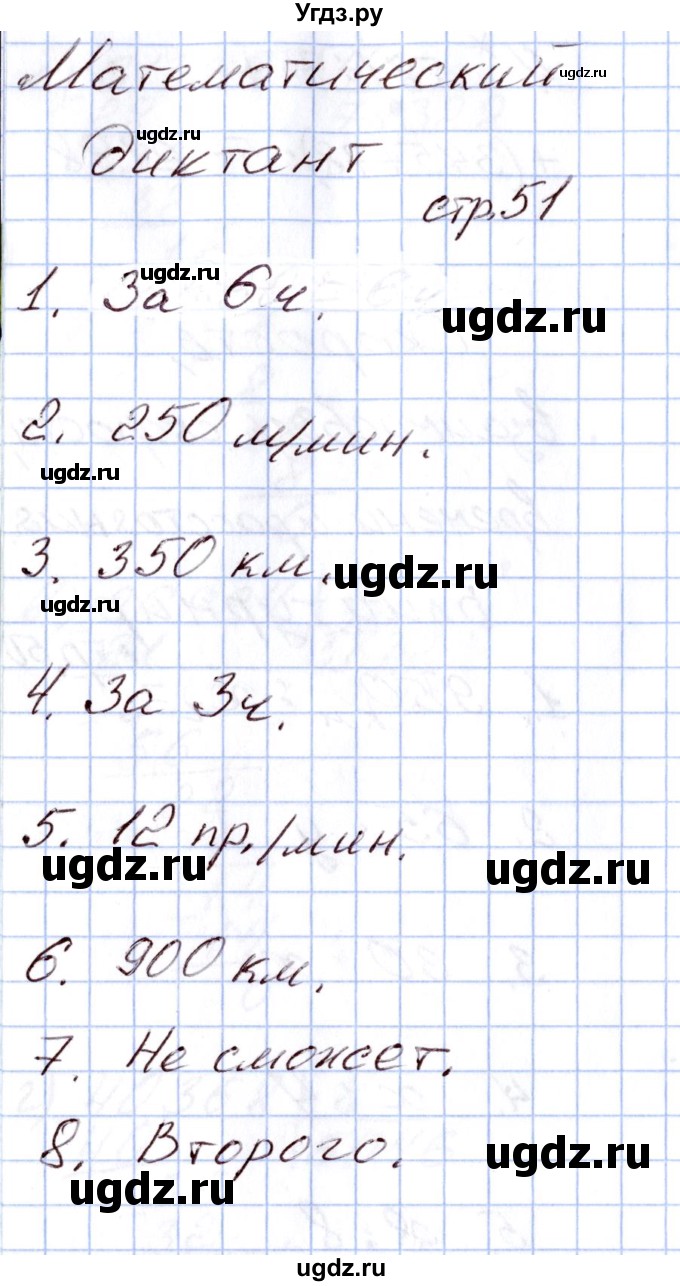 Угдз.ру
Математический
ugdz.ru
ugdz.ru
диктант
стр.51
ugdz.ru
1. За 6 ч.
ugdz.ru
2. 250 м/мин.
ugdz.ru
3. 350 км.
ugdz.ru
ugdz.ru
4. За 3ч.
5. 12 пр./мин.
ugdz.ru
ugdz.ru
6. 900 км.
7. Не сможет.
8. Второго.
ugdz.ru
ugdz.ru
ugdz.ru